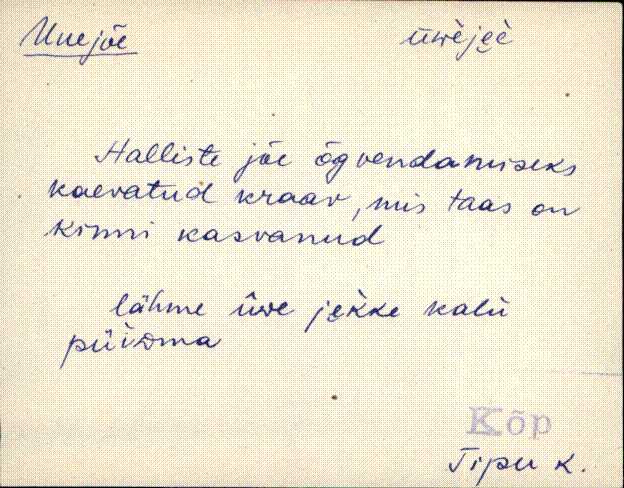 Uuejõe
üwèje̮è
Halliste jõe õgvendamiseks
kaevatud kraav, mis taas on
kinni kasvanud
lähme üwe je̮kke kalu
püidma
Kõp
Tipu k.